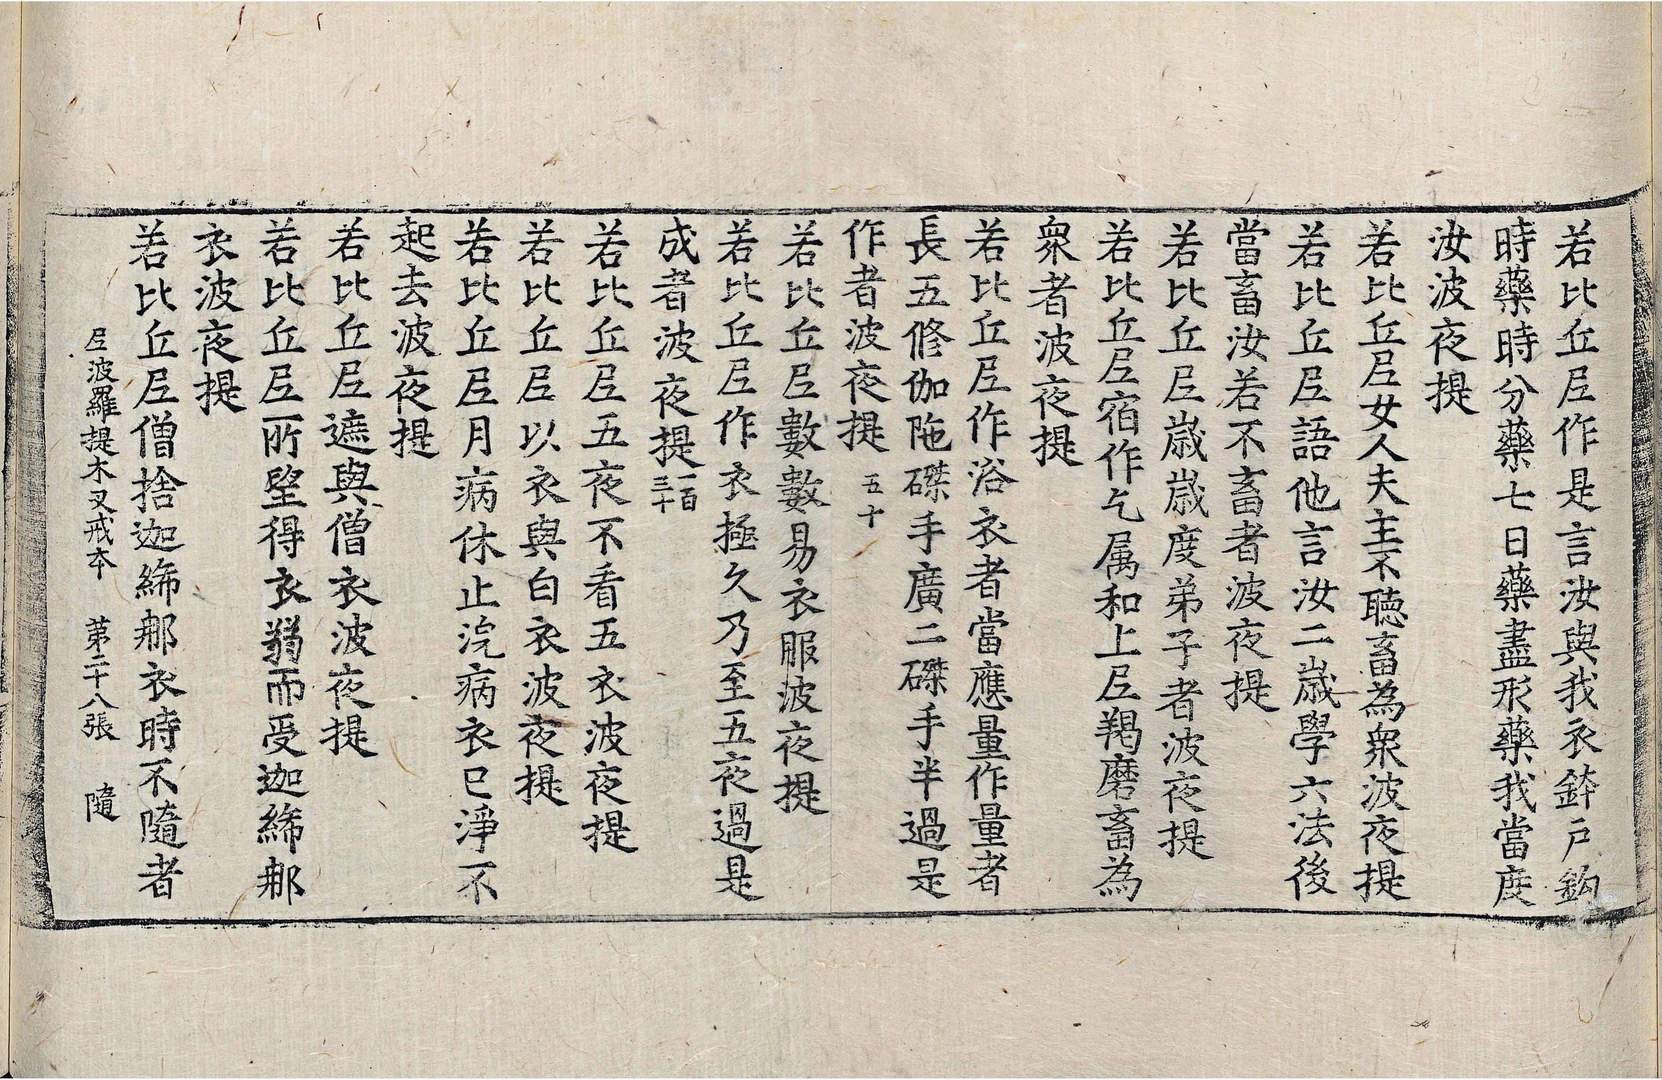 若比丘尼作是言汝與我衣鉢戶鉤
時藥時分藥七日藥盡形藥我當度
汝波夜提
若比丘尼女人夫主不聽畜為衆波夜提
若比丘尼語他言汝二歲學六法後
當畜汝若不畜者波夜提
若比丘尼歲歲度弟子者波夜提
若比丘尼宿作乞屬和上尼羯磨畜為
衆者波夜提
若比丘尼作浴衣者當應量作量者
長五修伽陁磔手廣二磔手半過是
作者波夜提 五十
若比丘尼數數易衣服波夜提
若比丘尼作衣極久乃至五夜過是
成者波夜提一百三十
若比丘尼五夜不看五衣波夜提
若比丘尼以衣與白衣波夜提
若比丘尼月病休止浣病衣已淨不
起去波夜提
若比丘尼遮與僧衣波夜提
若比丘尼所望得衣弱而受迦絺那
衣波夜提
若比丘尼僧捨迦絺那衣時不隨者
尼波羅提木叉戒本 第二十八張 隨